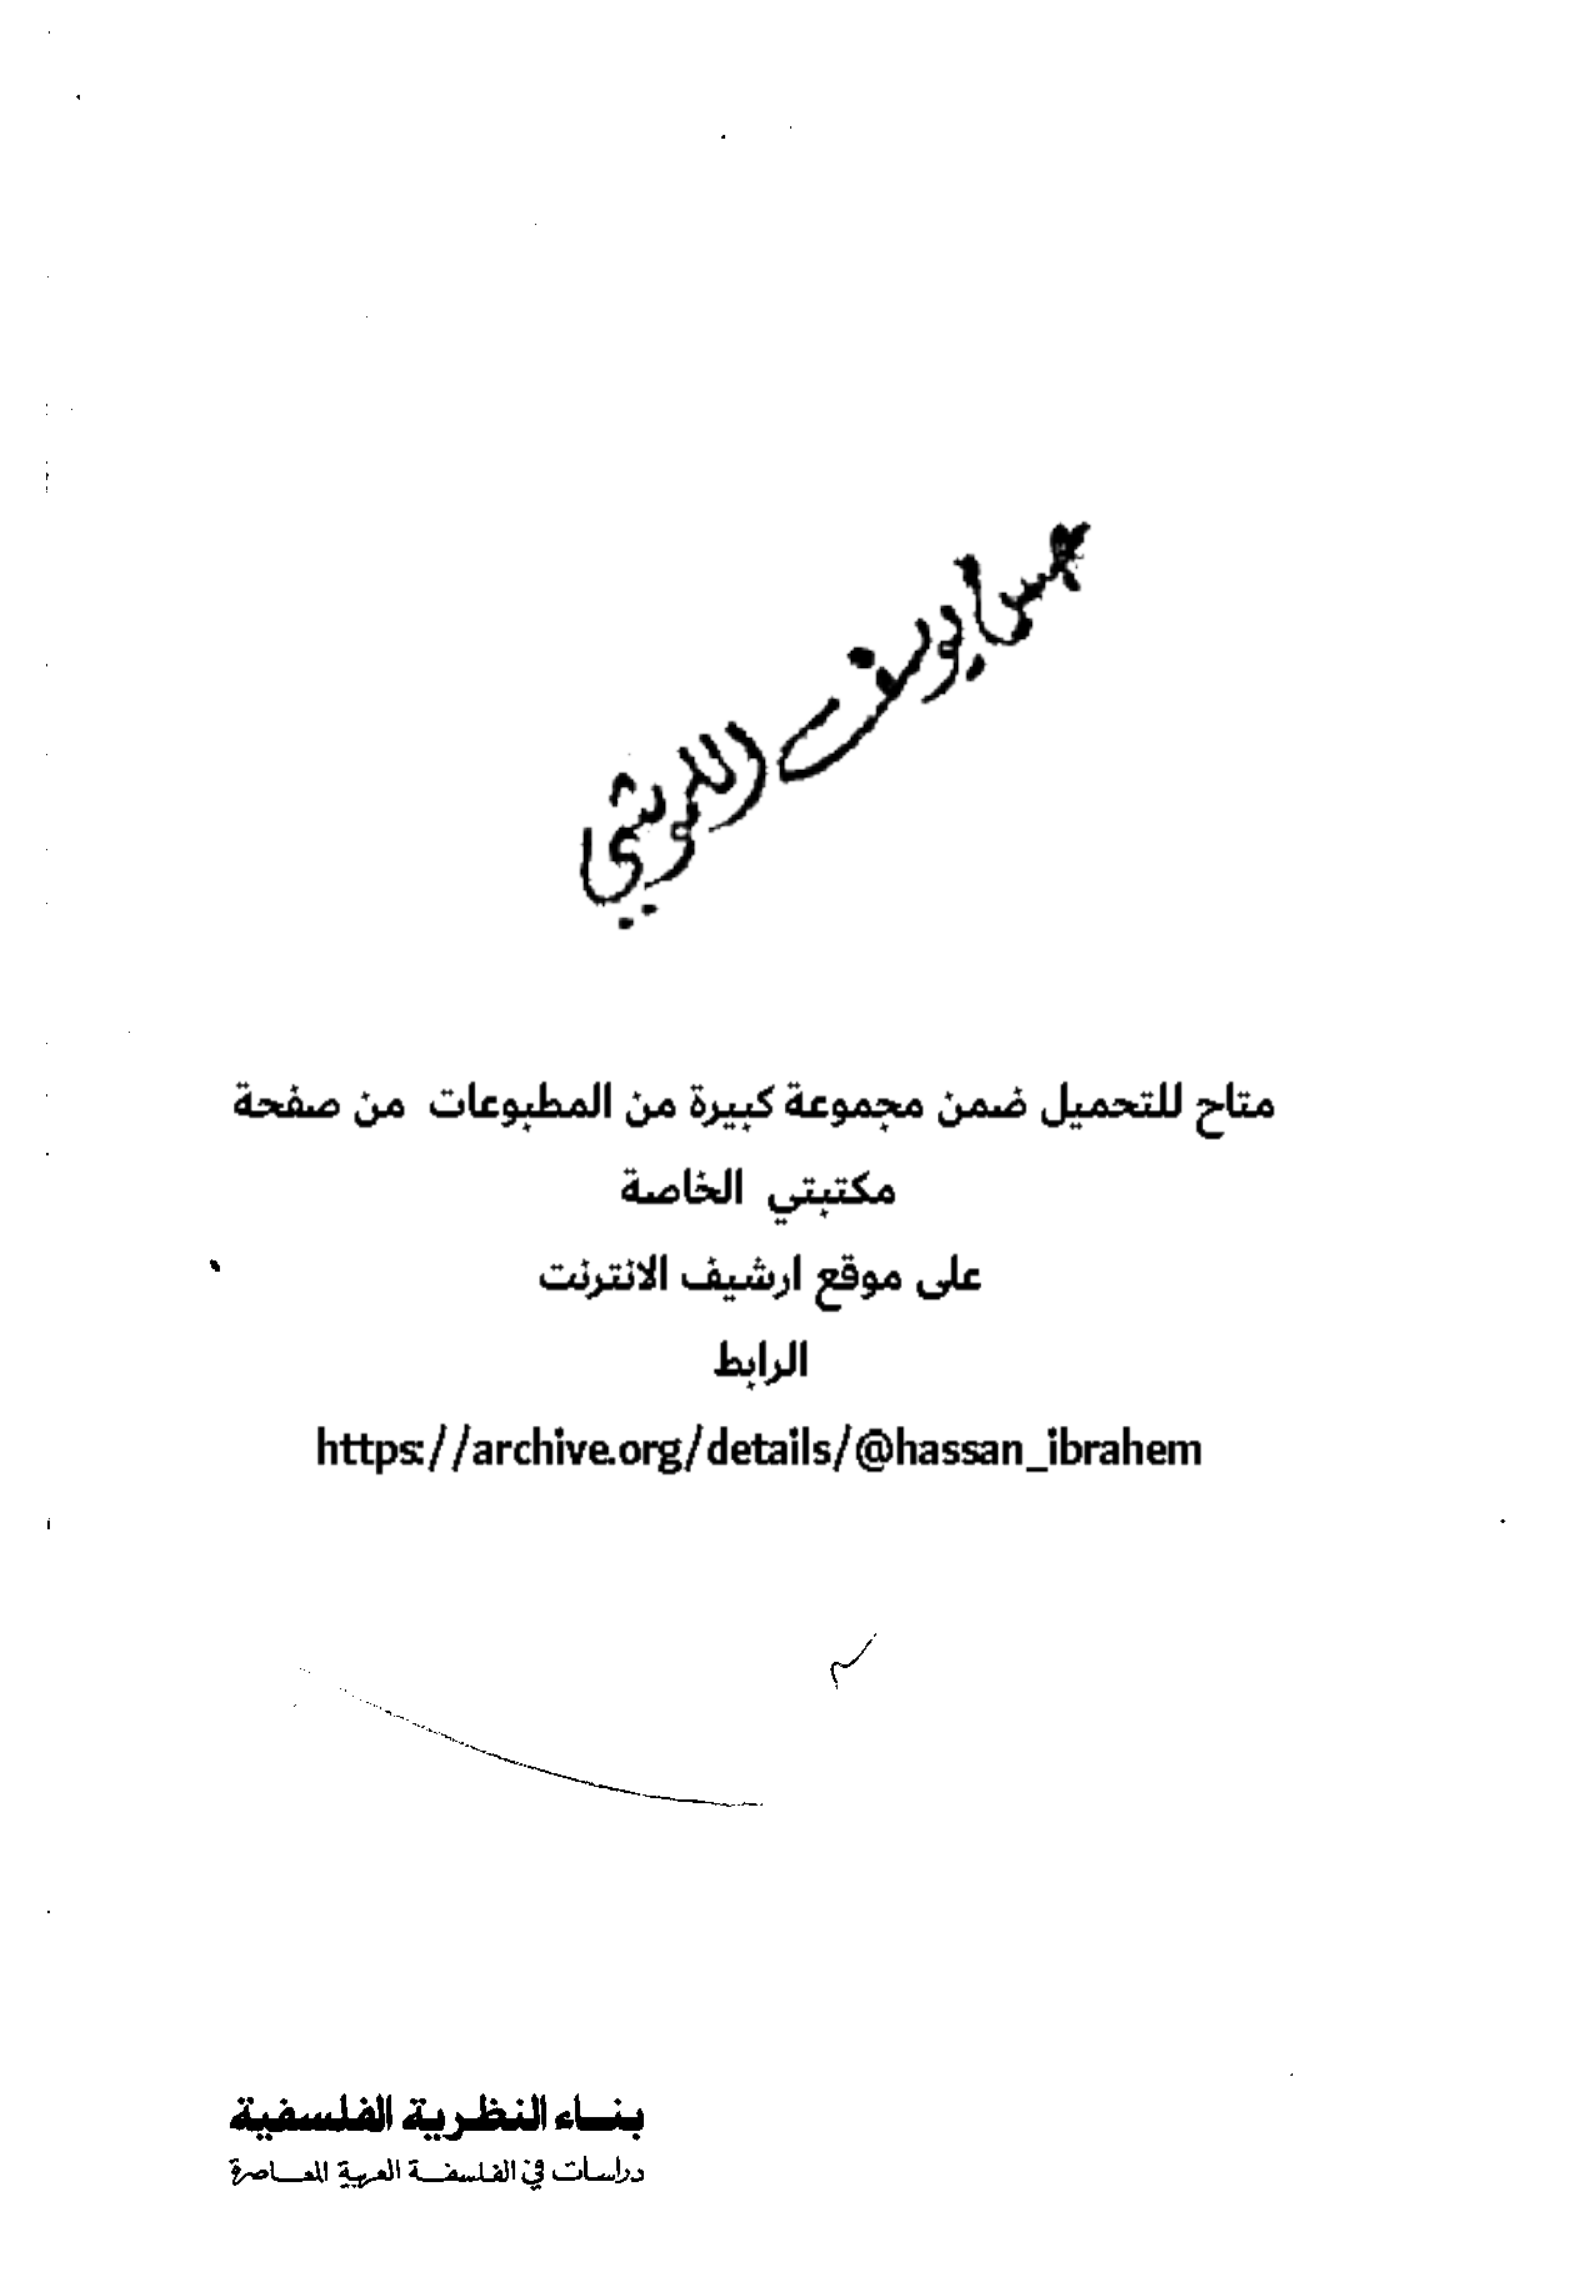 متاح للتحميل ضمن مجموعة كبيرة من المطبوعات من صفحة
مكتبتي الخاصة
على موقع ارشيف الانترنت
الرابط
https://archive.org/details/@hassan_ibrahem
بناء النظرية الفلسفية
دراسات في الفلسفة العربية المعاصرة